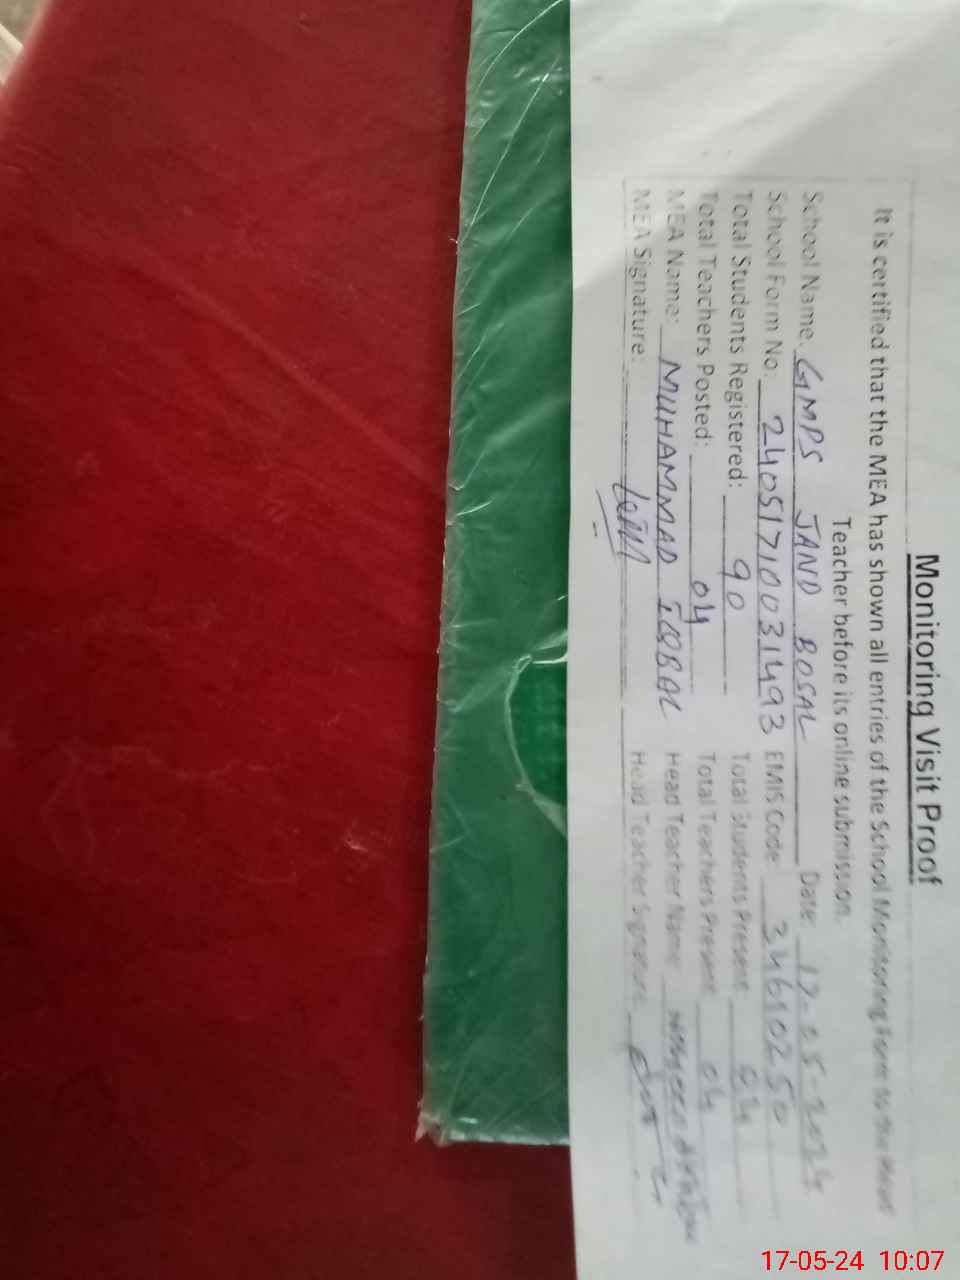 Monitoring Visit Proof
It is certified that the MEA has shown all entries of the School Monitoring Form to the Head
Teacher before its online submission.
School Name: GMPS JAND BOSAL Date: 17-05-2024
School Form No: 24051710031493 EMIS Code: 34610250
Total Students Registered: 90 Total Students Present:
Total Teachers Posted: 04 Total Teachers Present: 04
MEA Name: MUHAMMAD IQBAL Head Teacher Name:
MEA Signature: Head Teacher Signature:
17-05-24 10:07